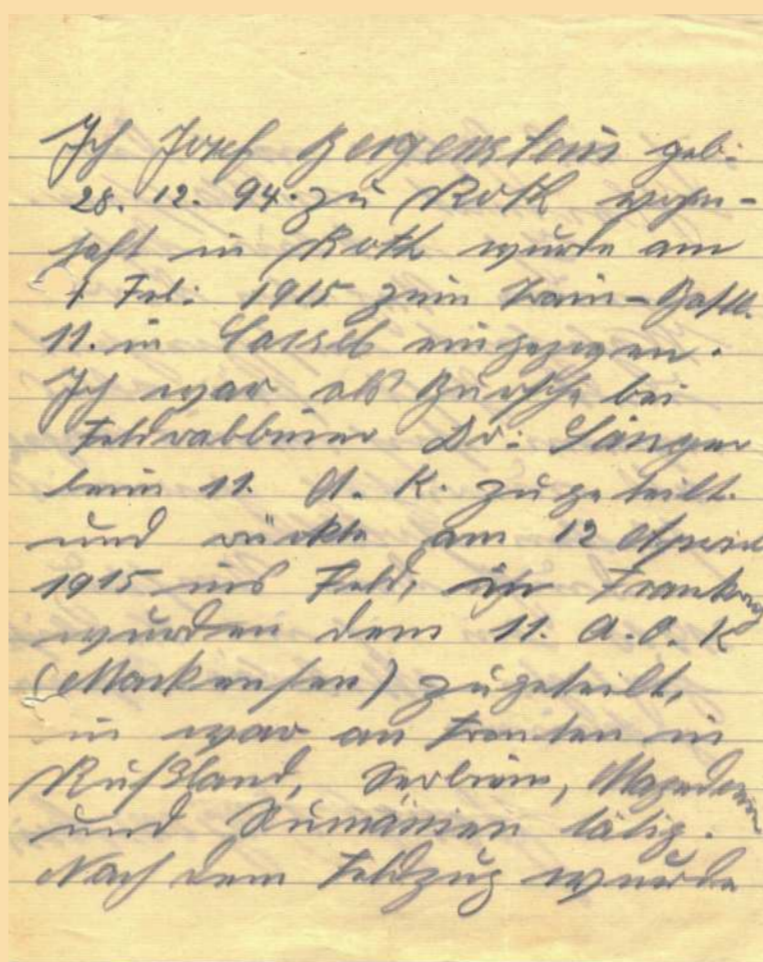 Ich Josef Bergenstein geb.
28. 12. 94. zu Roth wohn-
haft in Roth wurde am
1 Feb. 1915 zum Train-Batl.
11. in Cassel eingezogen.
Ich war als Bursche bei
Feldrabbiner Dr. Sänger
beim 11. A. K. zugeteilt.
und rückte am 12 April
1915 ins Feld, in
wurden dem 11. A.O.K
(Mackensen) zugeteilt,
in war an Fronten in
Rußland, Serbien, Mazedonien
und Rumänien tätig.
Nach dem Feldzug wurde